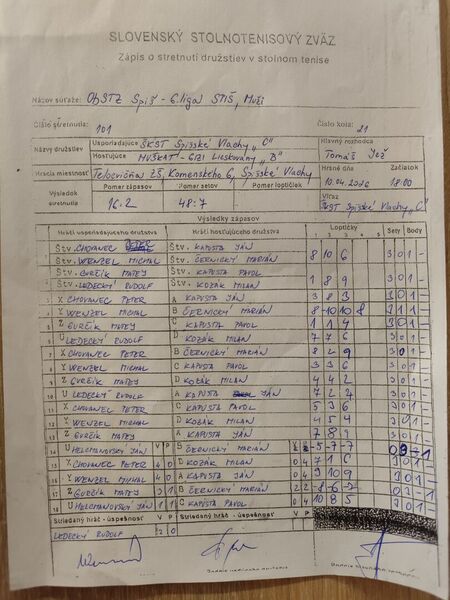 SLOVENSKÝ STOLNOTENISOVÝ ZVÄZ
Zápis o stretnutí družstiev v stolnom tenise
Názov súťaže: ObSTZ Spiš - 6.liga STIŠ, Muži
Číslo stretnutia: 101 Číslo kola: 21
Názvy družstiev Usporiadajúce ŠKST Spišské Vlachy „C“ Hlavný rozhodca
Hosťujúce MUŠKÁT - Lieskovany „B“ Tomáš
Hracia miestnosť Telocvičňa ZŠ, Komenského 6, Spišské Vlachy Hrané dňa Začiatok
Výsledok stretnutia Pomer zápasov Pomer setov Pomer loptičiek 10.04.2026 18:00
16:2 48:7 Víťaz ŠKST Spišské Vlachy „C“
Výsledky zápasov
Hráči usporiadajúceho družstva Hráči hosťujúceho družstva Loptičky Sety Body
Štv. CHOVANEC PETER Štv. KAPUSTA JÁN
Štv. WENZEL MICHAL Štv. ČERNICKÝ MARIÁN 8 10 6 3 0 1 -
Štv. GURČÍK MATEJ Štv. KAPUSTA PAVOL
Štv. LEDECKÝ RUDOLF Štv. KOZÁK MILAN 1 8 9 3 0 1 -
X CHOVANEC PETER A KAPUSTA JÁN 3 8 3 3 0 1 -
Y WENZEL MICHAL B ČERNICKÝ MARIÁN 8 -10 10 8 3 1 1 -
Z GURČÍK MATEJ C KAPUSTA PAVOL 1 1 4 3 0 1 -
U LEDECKÝ RUDOLF D KOZÁK MILAN 7 7 6 3 0 1 -
X CHOVANEC PETER B ČERNICKÝ MARIÁN 8 2 9 3 0 1 -
Y WENZEL MICHAL C KAPUSTA PAVOL 3 3 6 3 0 1 -
Z GURČÍK MATEJ D KOZÁK MILAN 4 4 2 3 0 1 -
U LEDECKÝ RUDOLF A KAPUSTA JÁN 7 2 2 3 0 1 -
X CHOVANEC PETER C KAPUSTA PAVOL 5 3 6 3 0 1 -
Y WENZEL MICHAL D KOZÁK MILAN 4 5 4 3 0 1 -
Z GURČÍK MATEJ A KAPUSTA JÁN 7 8 9 3 0 1 -
U HELCMANOVSKÝ JÁN V P B ČERNICKÝ MARIÁN V P -5 -7 -7 0 3 - 1
X CHOVANEC PETER 4 0 D KOZÁK MILAN 0 4 3 0 1 -
Y WENZEL MICHAL 4 0 A KAPUSTA JÁN 0 4 9 10 9 3 0 1 -
Z GURČÍK MATEJ 3 1 B ČERNICKÝ MARIÁN 2 2
U HELCMANOVSKÝ JÁN 1 1 C KAPUSTA PAVOL 0 4 10 8 5 3 0 1 -
Striedaný hráč - úspešnosť Striedaný hráč - úspešnosť
LEDECKÝ RUDOLF 2 0